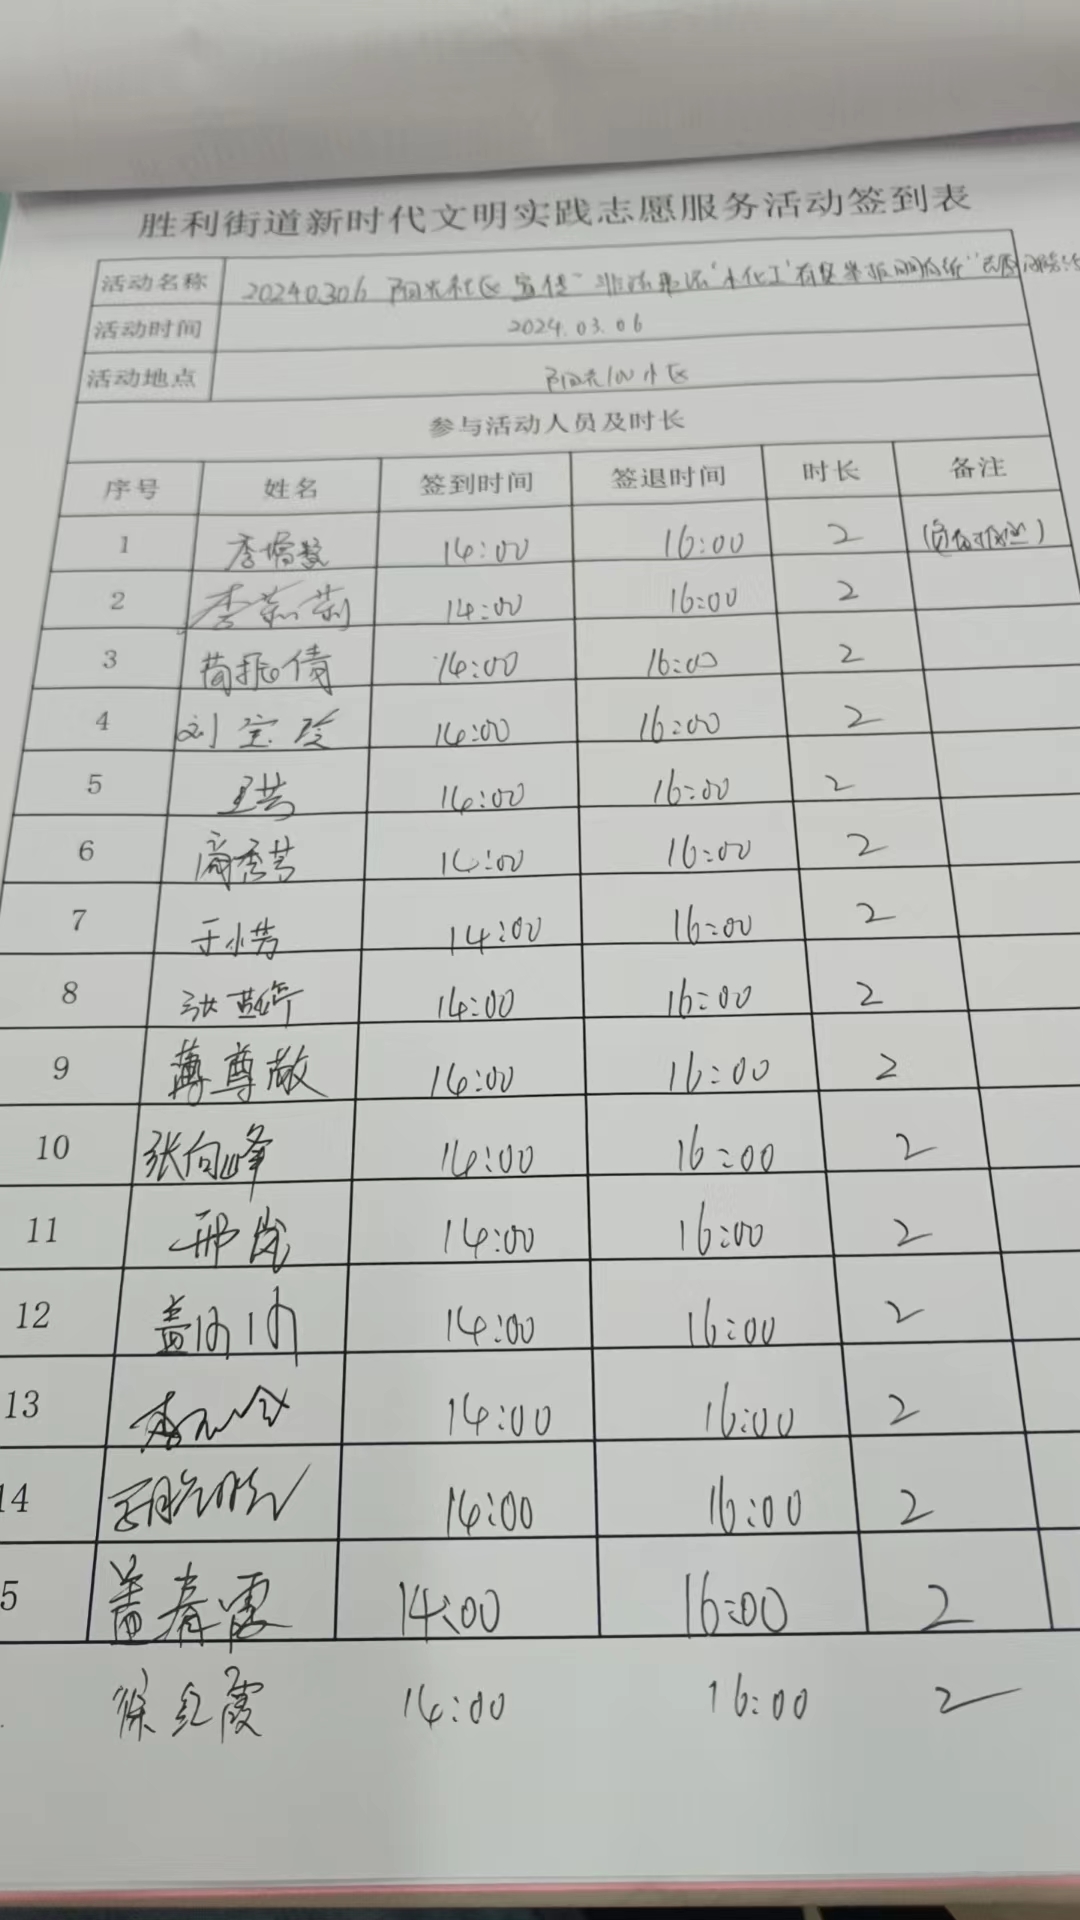 胜利街道新时代文明实践志愿服务活动签到表
活动名称 20240306 阳光社区宣传"非法采派"小化工"有奖举报
活动时间 2024.03.06
活动地点 阳光100小区
参与活动人员及时长
序号 姓名 签到时间 签退时间 时长 备注
1 李 14:00 16:00 2
2 李莉莉 14:00 16:00 2
3 苘振倩 14:00 16:00 2
4 刘宝玲 14:00 16:00 2
5 王芸 14:00 16:00 2
6 商秀芳 14:00 16:00 2
7 于小芳 14:00 16:00 2
8 张 14:00 16:00 2
9 薄尊敬 14:00 16:00 2
10 张向峰 14:00 16:00 2
11 邢岚 14:00 16:00 2
12 盖 14:00 16:00 2
13 李 14:00 16:00 2
14 14:00 16:00 2
5 盖春霞 14:00 16:00 2
徐红霞 14:00 16:00 2